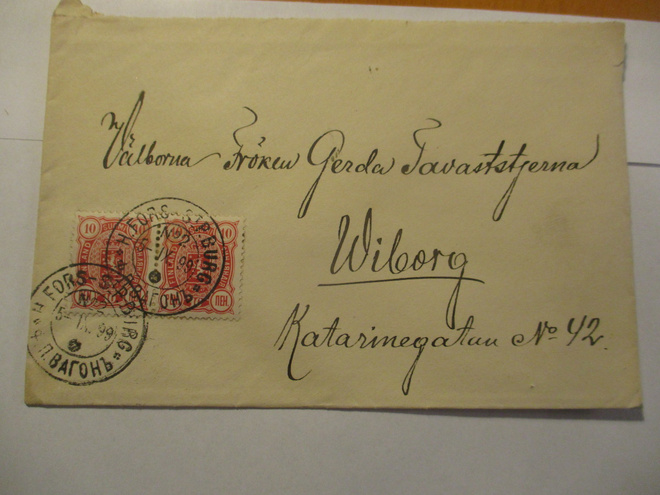 Välborna Fröken Gerda Tavaststjerna
Wiborg
Katarinegatan No 42.
10 10
FINLAND
ПЕН
H.FORS-ST.P.BURG
No 2
П.ВАГОНЪ
H.FORS-ST.P.BURG
99
П.ВАГОНЪ